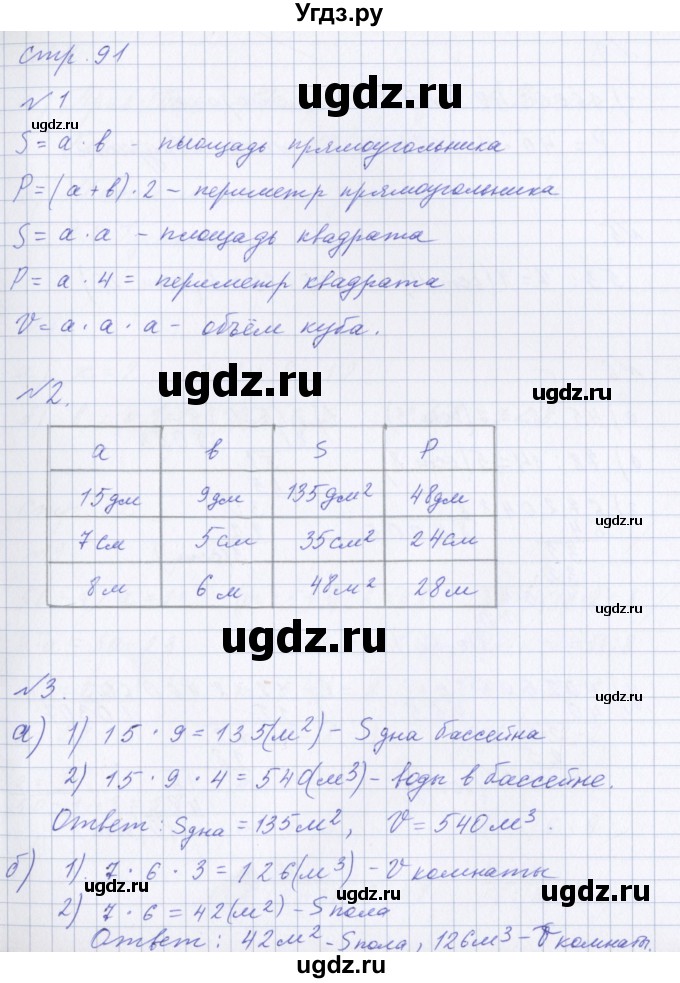 Угдз.ру
стр. 91
ugdz.ru
№1
S = a · в - площадь прямоугольника
P = (a + в) · 2 - периметр прямоугольника
S = a · a - площадь квадрата
P = a · 4 = периметр квадрата
V = a · a · a - объём куба.
ugdz.ru
ugdz.ru
№2.
ugdz.ru
a в S P
15дм 9дм 135дм² 48дм
7см 5см 35см² 24см
ugdz.ru
8м 6м 48м² 28м
ugdz.ru
ugdz.ru
№3.
ugdz.ru
а) 1) 15 · 9 = 135(м²) - S дна бассейна
2) 15 · 9 · 4 = 540(м³) - воды в бассейне.
Ответ: S дна = 135м², V = 540м³.
ugdz.ru
б) 1). 7 · 6 · 3 = 126(м³) - V комнаты
2) 7 · 6 = 42(м²) - S пола
ugdz.ru
Ответ: 42м² - S пола, 126м³ - V комнаты.
ugdz.ru